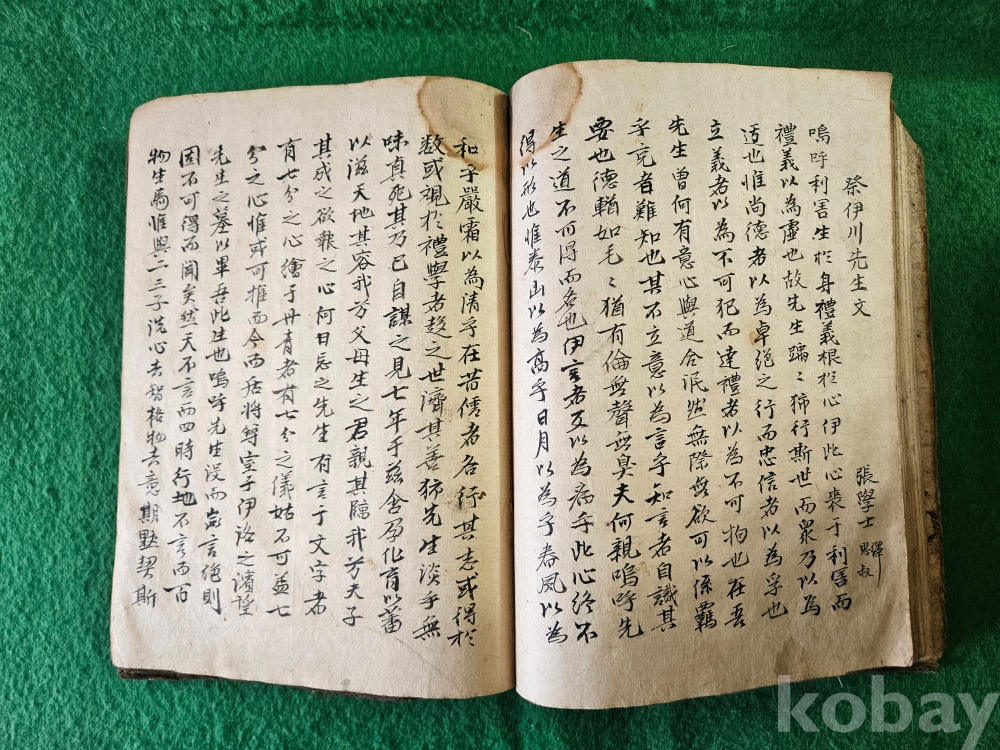 祭伊川先生文
張學士 思叔 繹
嗚呼利害生於身禮義根於心伊此心喪于利害而
禮義以為虛也故先生踽〻獨行斯世而衆乃以為
迂也惟尚德者以為卓絶之行而忠信者以為孚也
立義者以為不可犯而達禮者以為不可拘也在吾
先生曾何有意心與道合泯然無際無欲可以係羈
乎克者難知也其不立意以為言乎知言者自識其
要也德輶如毛〻猶有倫無聲無臭夫何親嗚呼先
生之道不可得而名也伊言者反以為病乎此心終不
得以形也惟泰山以為高乎日月以為乎春風以為
和乎嚴霜以為清乎在昔儒者各行其志或得於
數或觀於禮學者趍之世濟其善獨先生淡乎無
味真死其乃已自謀之見七年于玆含孕化育以蕃
以滋天地其容我乎父母生之君親其臨我乎夫子
其成之欲報之心何日忘之先生有言于文字者
有七分之心繪于丹青者有七分之儀姑不可益七
分之心惟或可推而今而居將築室于伊洛之濱望
先生之墓以畢吾此生也嗚呼先生沒而微言絶則
固不可得而聞矣然天不言而四時行地不言而百
物生焉惟與二三子洗心去智格物去意期默契斯
kobay